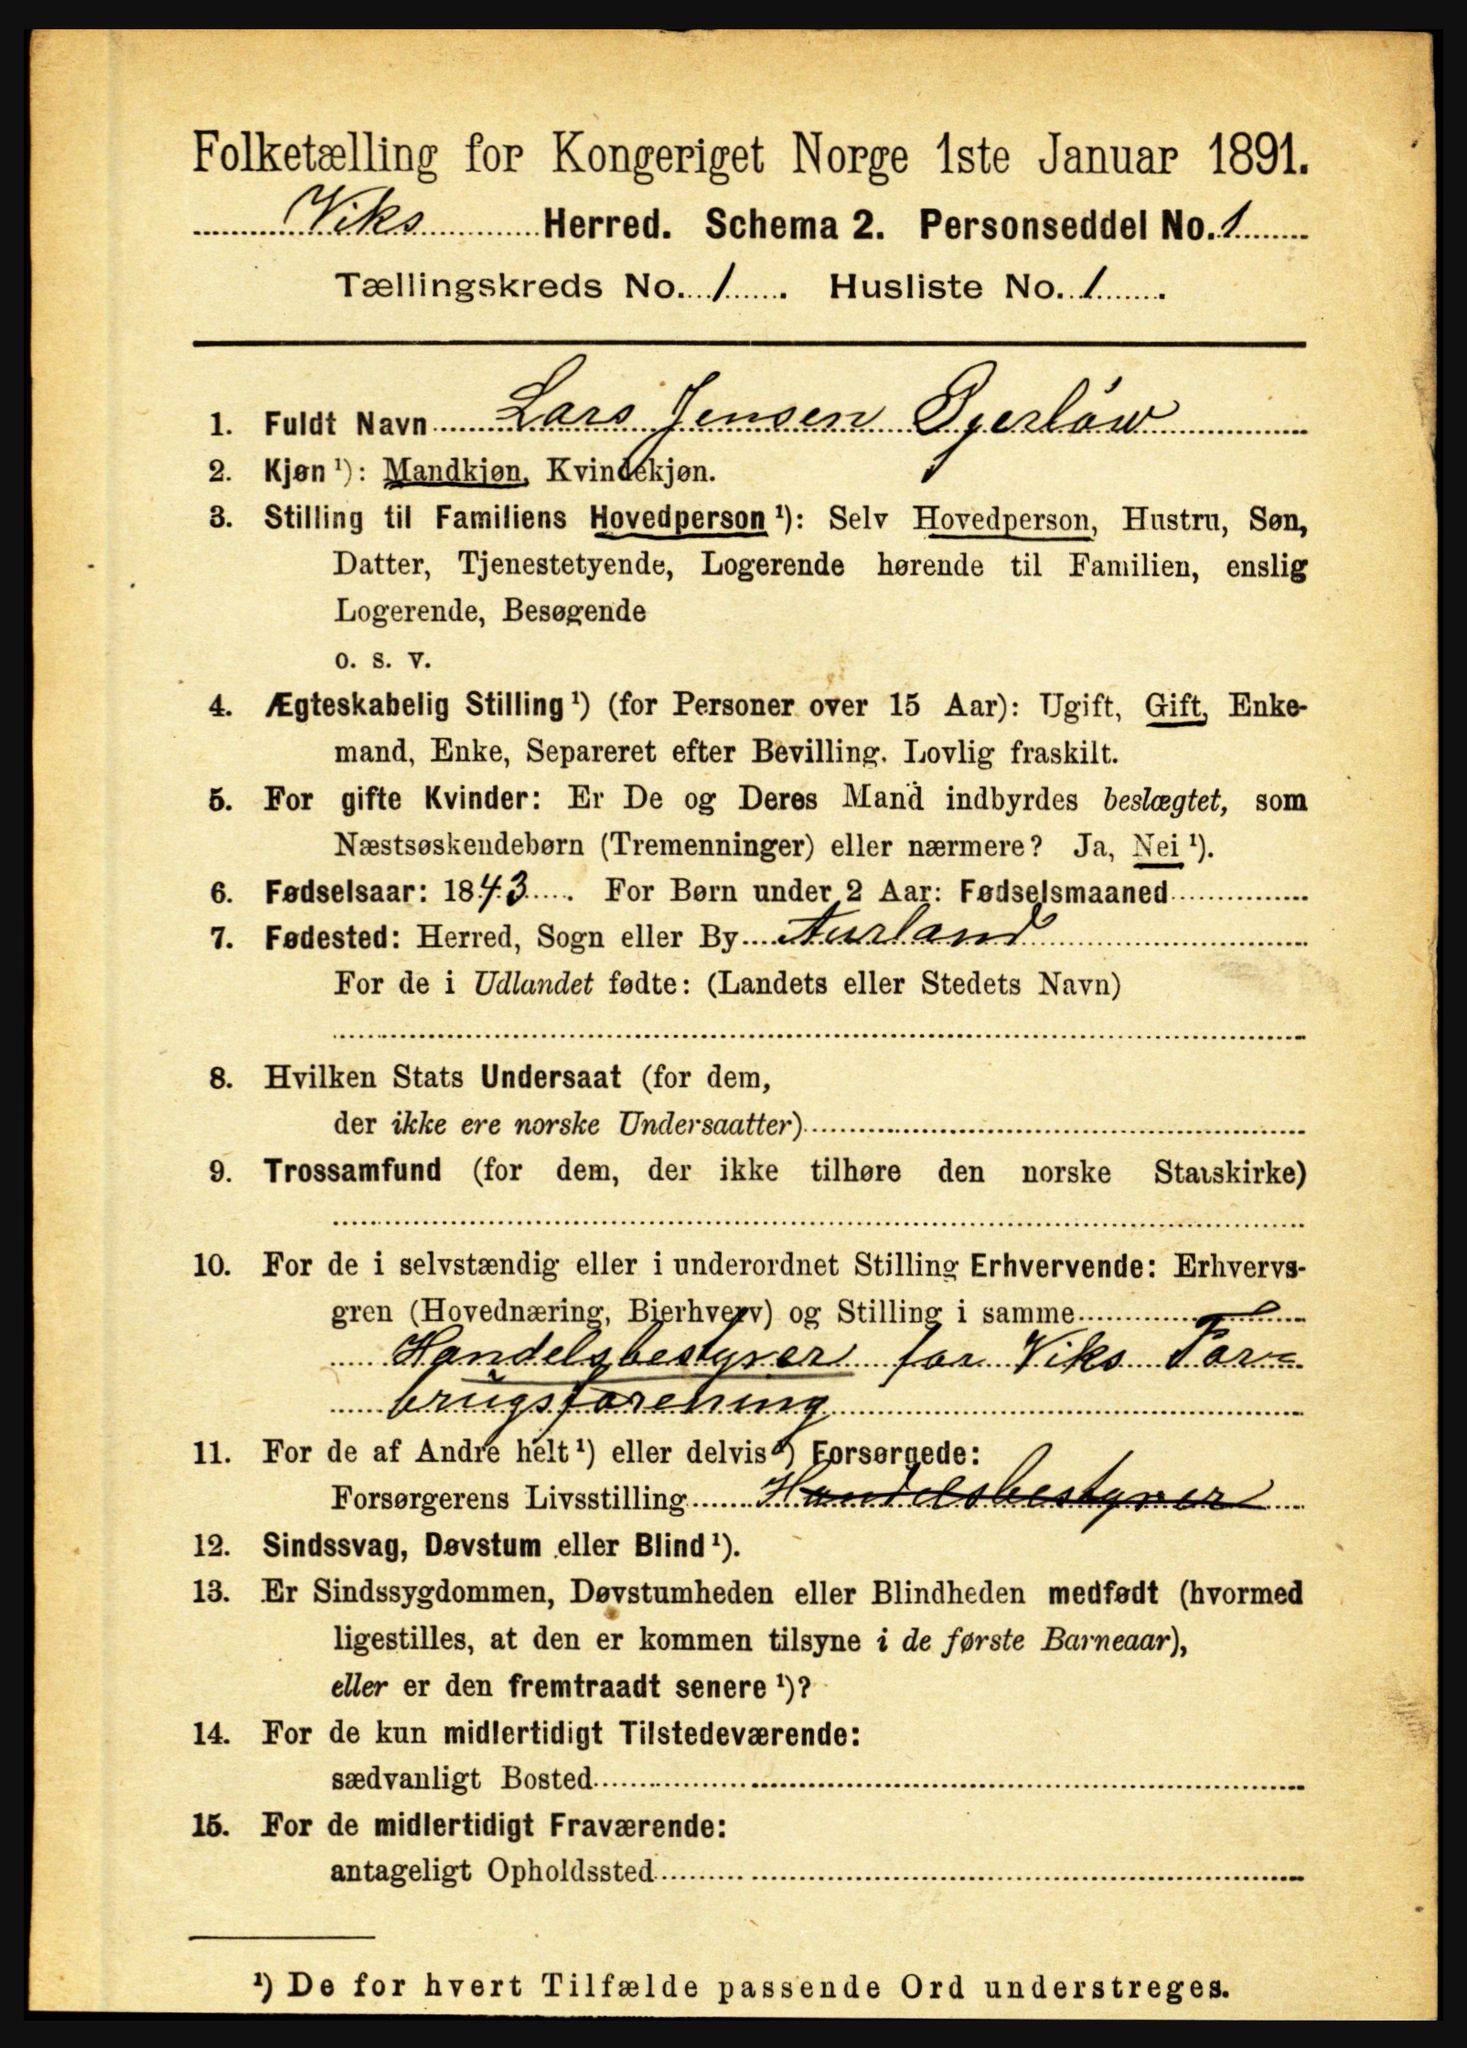 Folketælling for Kongeriget Norge 1ste Januar 1891.
Viks Herred. Schema 2. Personseddel No. 1
Tællingskreds No. 1. Husliste No. 1.
1. Fuldt Navn Lars Jensen Gjerløw
2. Kjøn ¹): Mandkjøn, Kvindekjøn.
3. Stilling til Familiens Hovedperson ¹): Selv Hovedperson, Hustru, Søn,
Datter, Tjenestetyende, Logerende hørende til Familien, enslig
Logerende, Besøgende
o. s. v.
4. Ægteskabelig Stilling ¹) (for Personer over 15 Aar): Ugift, Gift, Enke-
mand, Enke, Separeret efter Bevilling. Lovlig fraskilt.
5. For gifte Kvinder: Er De og Deres Mand indbyrdes beslægtet, som
Næstsøskendebørn (Tremenninger) eller nærmere? Ja, Nei ¹).
6. Fødselsaar: 1843. For Børn under 2 Aar: Fødselsmaaned
7. Fødested: Herred, Sogn eller By Aurland
For de i Udlandet fødte: (Landets eller Stedets Navn)
8. Hvilken Stats Undersaat (for dem,
der ikke ere norske Undersaatter)
9. Trossamfund (for dem, der ikke tilhøre den norske Statskirke)
10. For de i selvstændig eller i underordnet Stilling Erhvervende: Erhvervs-
gren (Hovednæring, Bierhverv) og Stilling i samme
Handelsbestyrer for Viks For=
brugsforening
11. For de af Andre helt ¹) eller delvis ¹) Forsørgede:
Forsørgerens Livsstilling Handelsbestyrer
12. Sindssvag, Døvstum eller Blind ¹).
13. Er Sindssygdommen, Døvstumheden eller Blindheden medfødt (hvormed
ligestilles, at den er kommen tilsyne i de første Barneaar),
eller er den fremtraadt senere ¹)?
14. For de kun midlertidigt Tilstedeværende:
sædvanligt Bosted
15. For de midlertidigt Fraværende:
antageligt Opholdssted
¹) De for hvert Tilfælde passende Ord understreges.